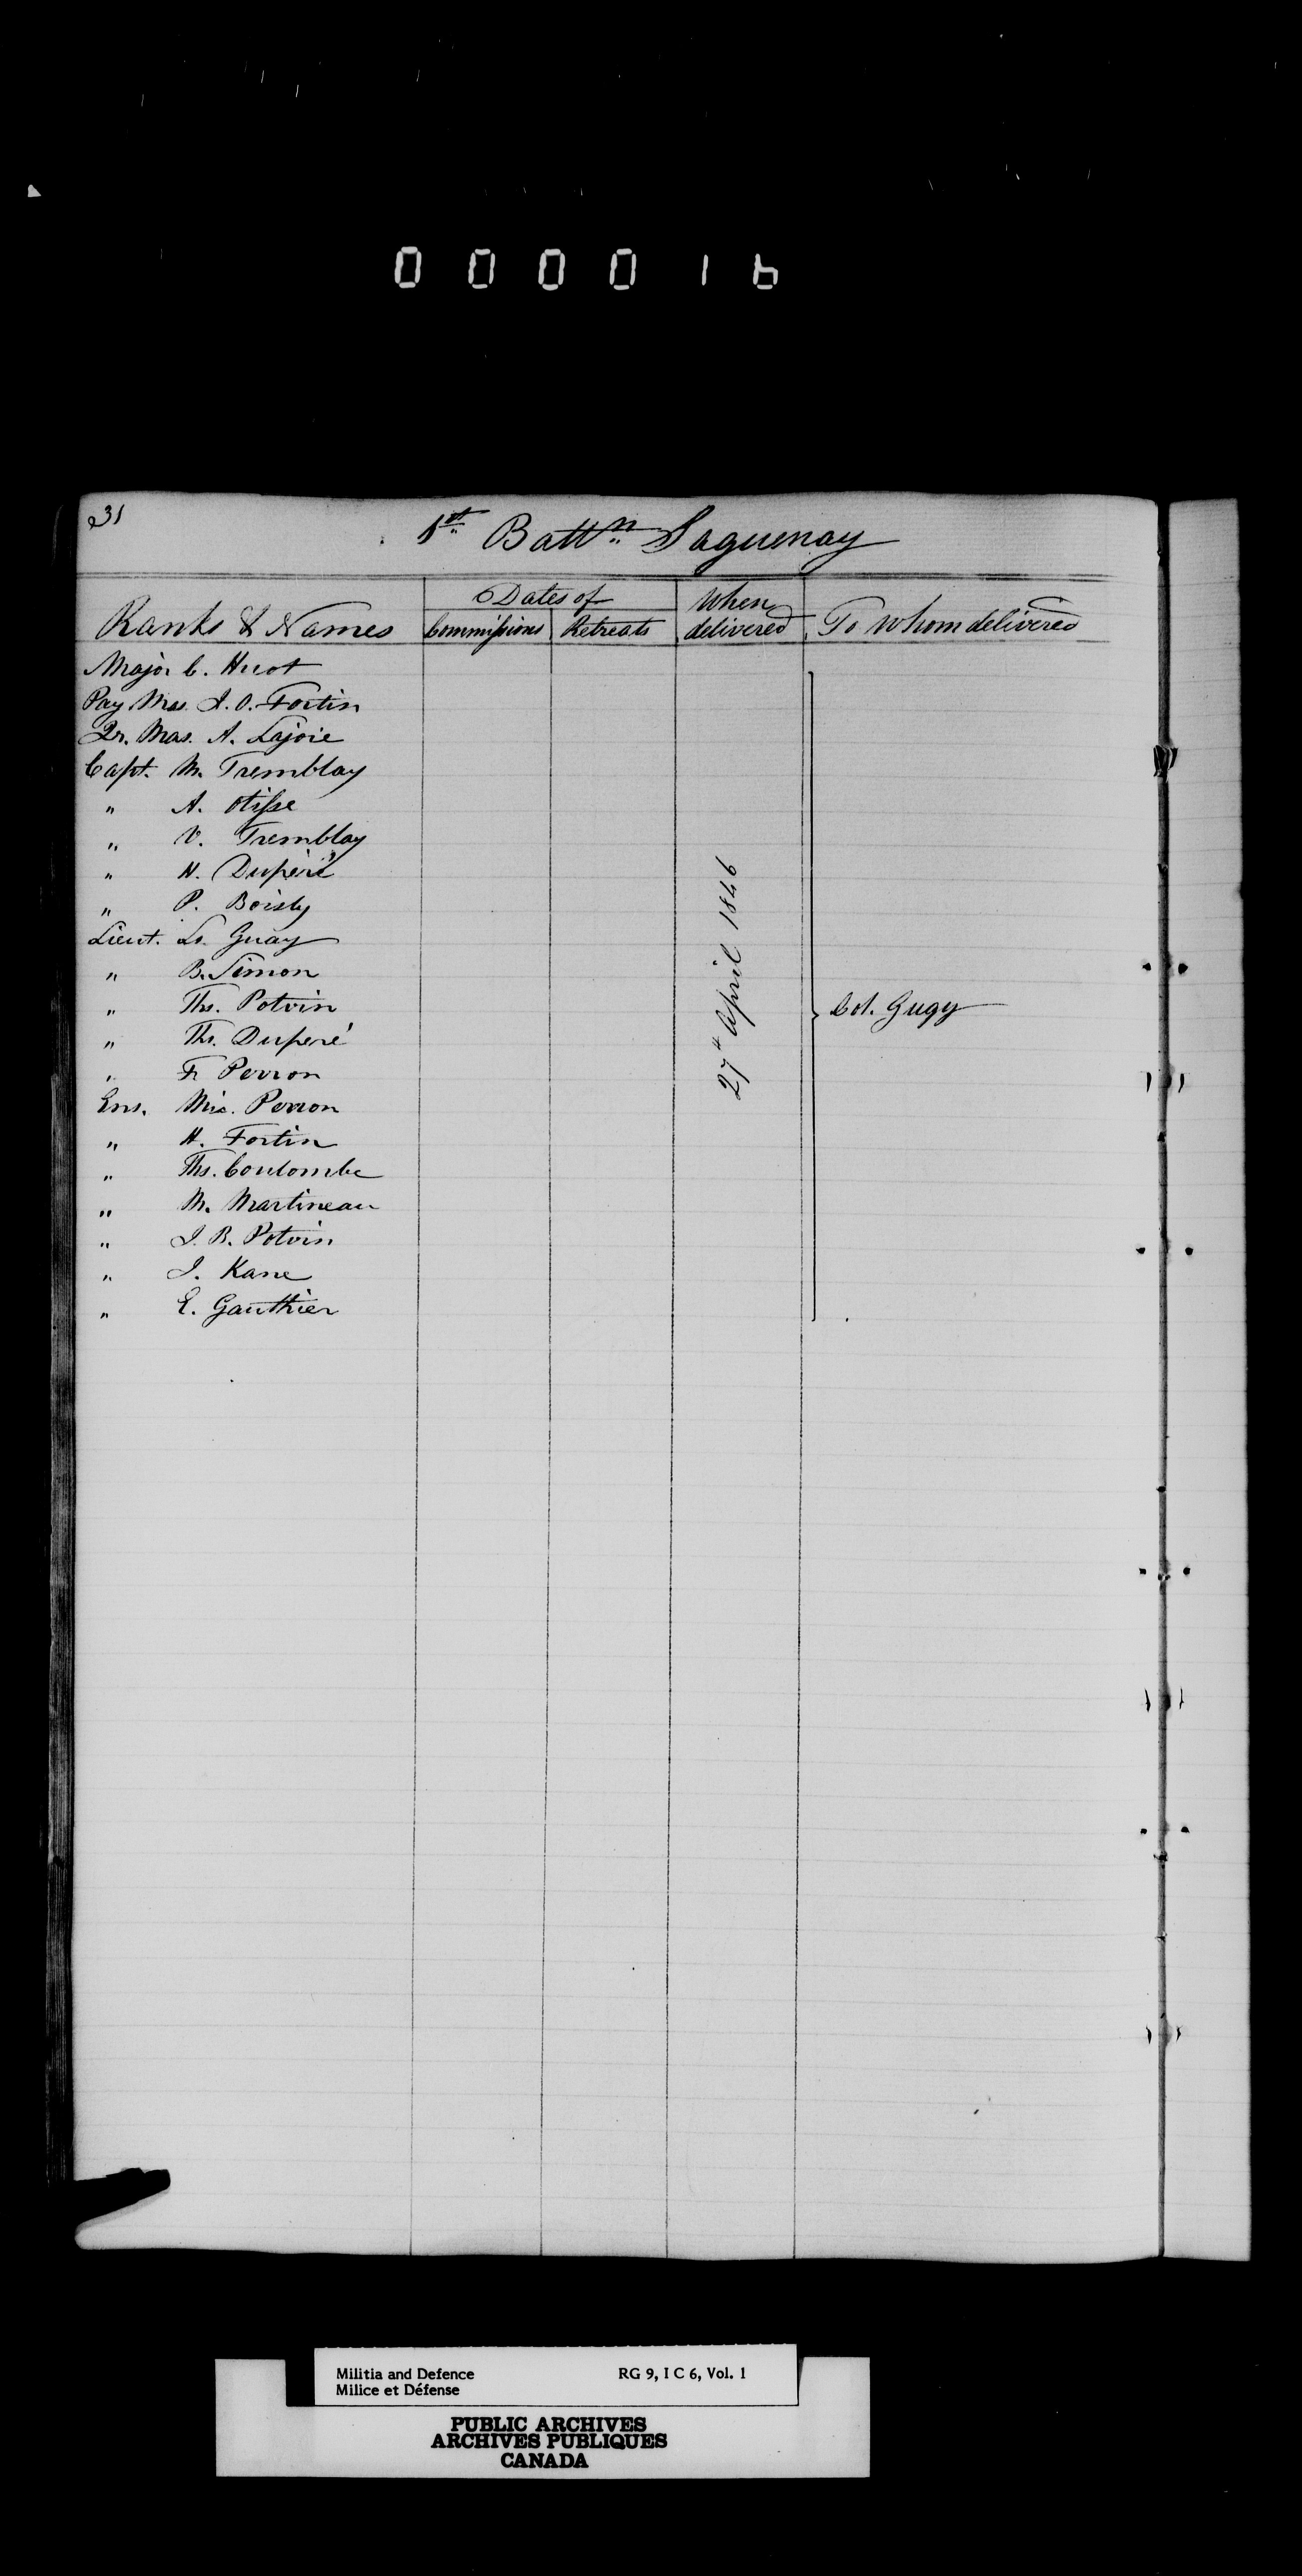 000016
231
1st Battn Saguenay
Ranks & Names
Dates of
Commissions
Retreats
When delivered
To Whom delivered
Major C. Huot
Pay Mas. J. O. Fortin
Qr. Mas. A. Lajoie
Capt. M. Tremblay
" A. Otisse
" V. Tremblay
" H. Duperé
" P. Boisly
Lieut. Ls. Guay
" B. Simon
" Ths. Potvin
" Ths. Duperé
" F. Perron
Ens. Mic. Perron
" H. Fortin
" Ths. Coulombe
" M. Martineau
" J. B. Potvin
" J. Kane
" E. Gauthier
27th April 1846
Col. Gugy
Militia and Defence
Milice et Défense
RG 9, I C 6, Vol. 1
PUBLIC ARCHIVES
ARCHIVES PUBLIQUES
CANADA